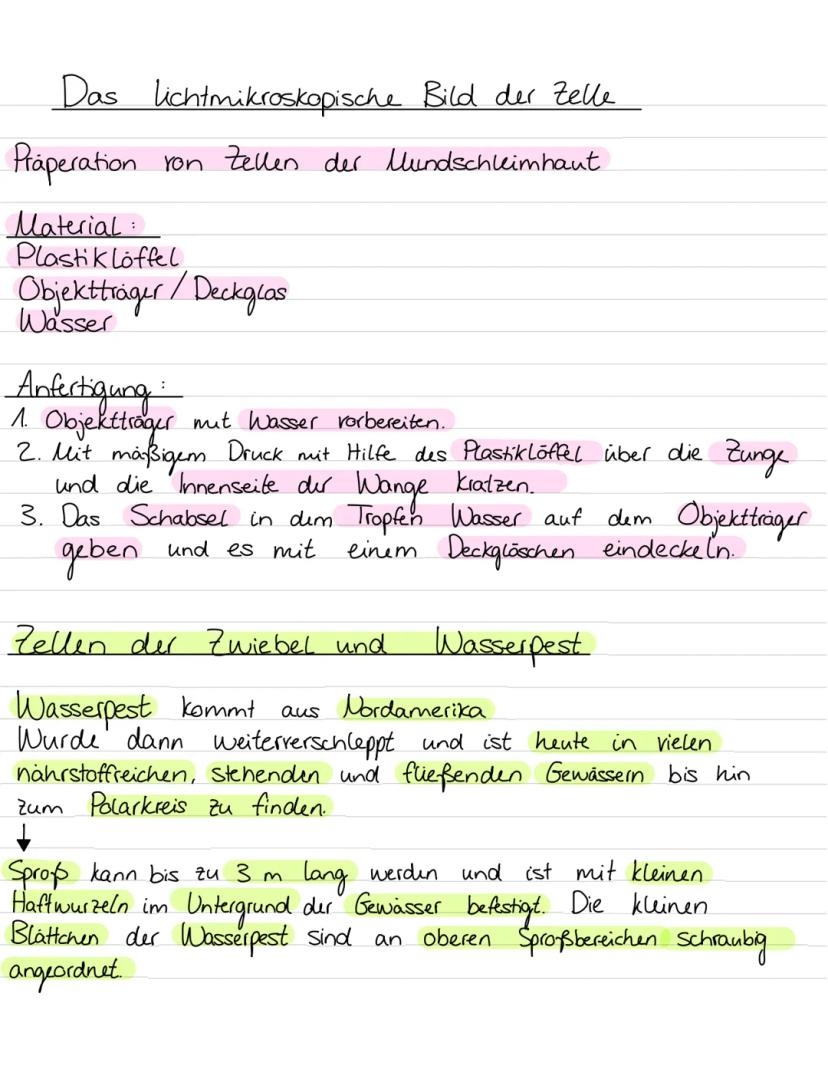 Das lichtmikroskopische Bild der Zelle
Präperation von Zellen der Mundschleimhaut
Material:
Plastiklöffel
Objektträger / Deckglas
Wasser
Anfertigung:
1. Objektträger mit Wasser vorbereiten.
2. Mit mäßigem Druck mit Hilfe des Plastiklöffel über die Zunge
und die Innenseite der Wange kratzen.
3. Das Schabsel in dem Tropfen Wasser auf dem Objektträger
geben und es mit einem Deckgläschen eindeckeln.
Zellen der Zwiebel und Wasserpest
Wasserpest kommt aus Nordamerika
Wurde dann weiterverschleppt und ist heute in vielen
nährstoffreichen, stehenden und fließenden Gewässern bis hin
zum Polarkreis zu finden.
↓
Sproß kann bis zu 3 m lang werden und ist mit kleinen
Haftwurzeln im Untergrund der Gewässer befestigt. Die kleinen
Blättchen der Wasserpest sind an oberen Sproßbereichen schraubig
angeordnet.